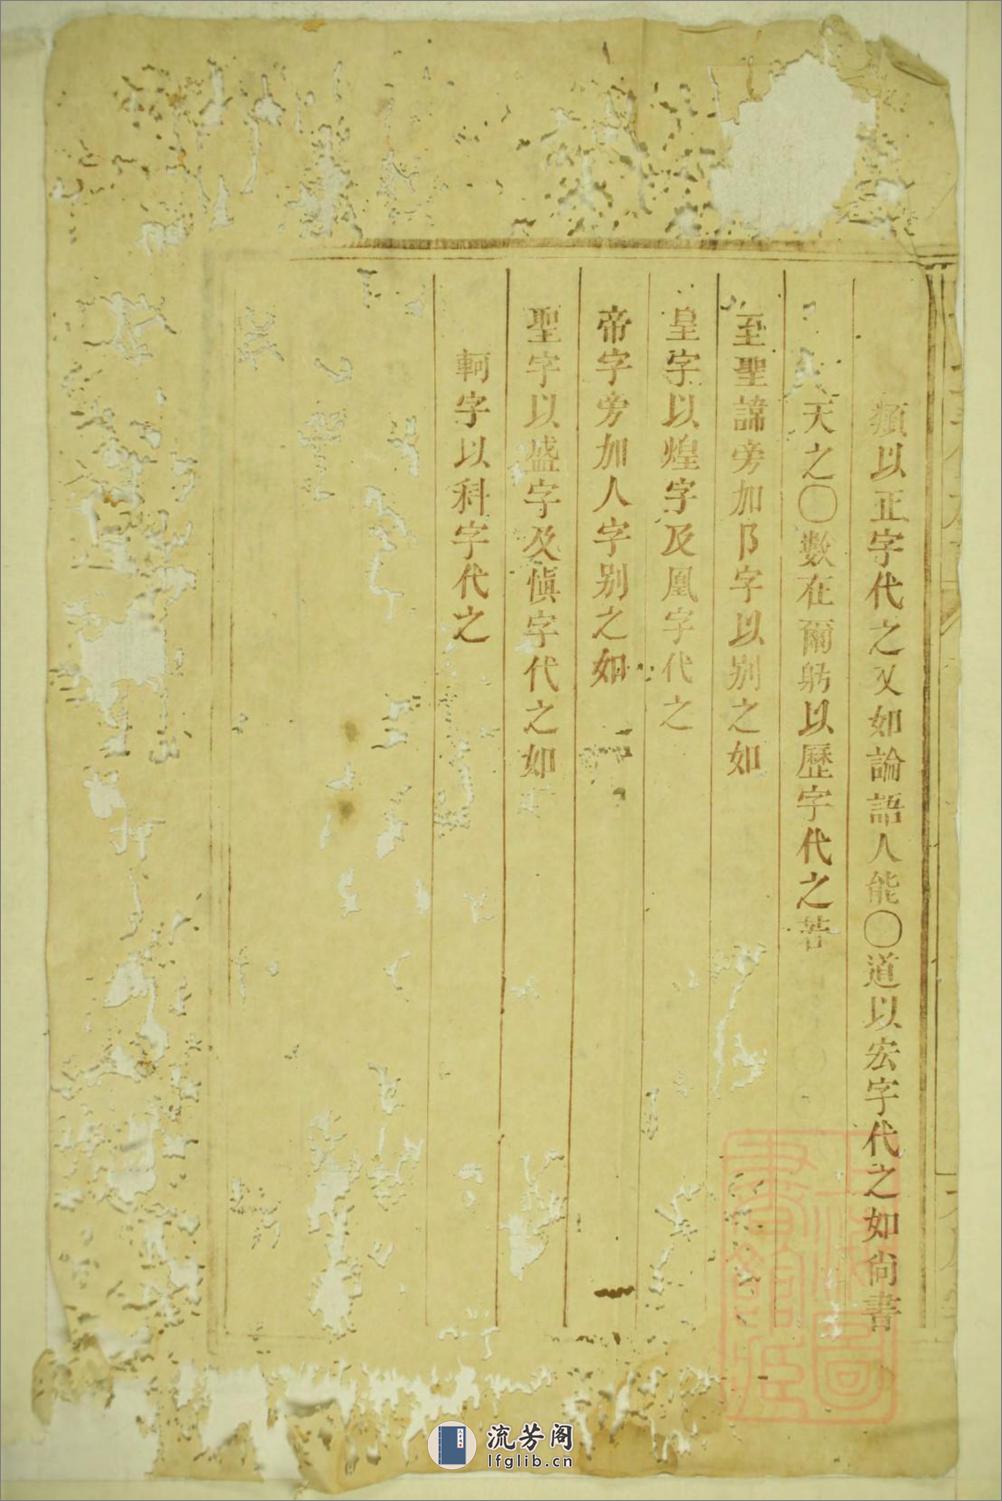 類以正字代之又如論語人能〇道以宏字代之如尚書
天之〇數在爾躬以歷字代之若
至聖諱旁加阝字以別之如
皇字以煌字及凰字代之
帝字旁加人字別之如
聖字以盛字及愼字代之如
軻字以科字代之
上海圖書館藏
流芳阁
lfglib.cn